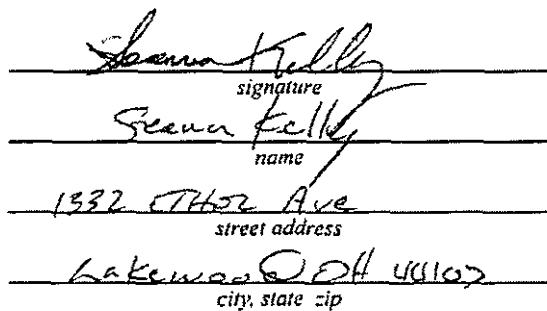 Kelly
signature
Kelly
name
1332 Ethel Ave
street address
Lakewood OH 44107
city, state zip